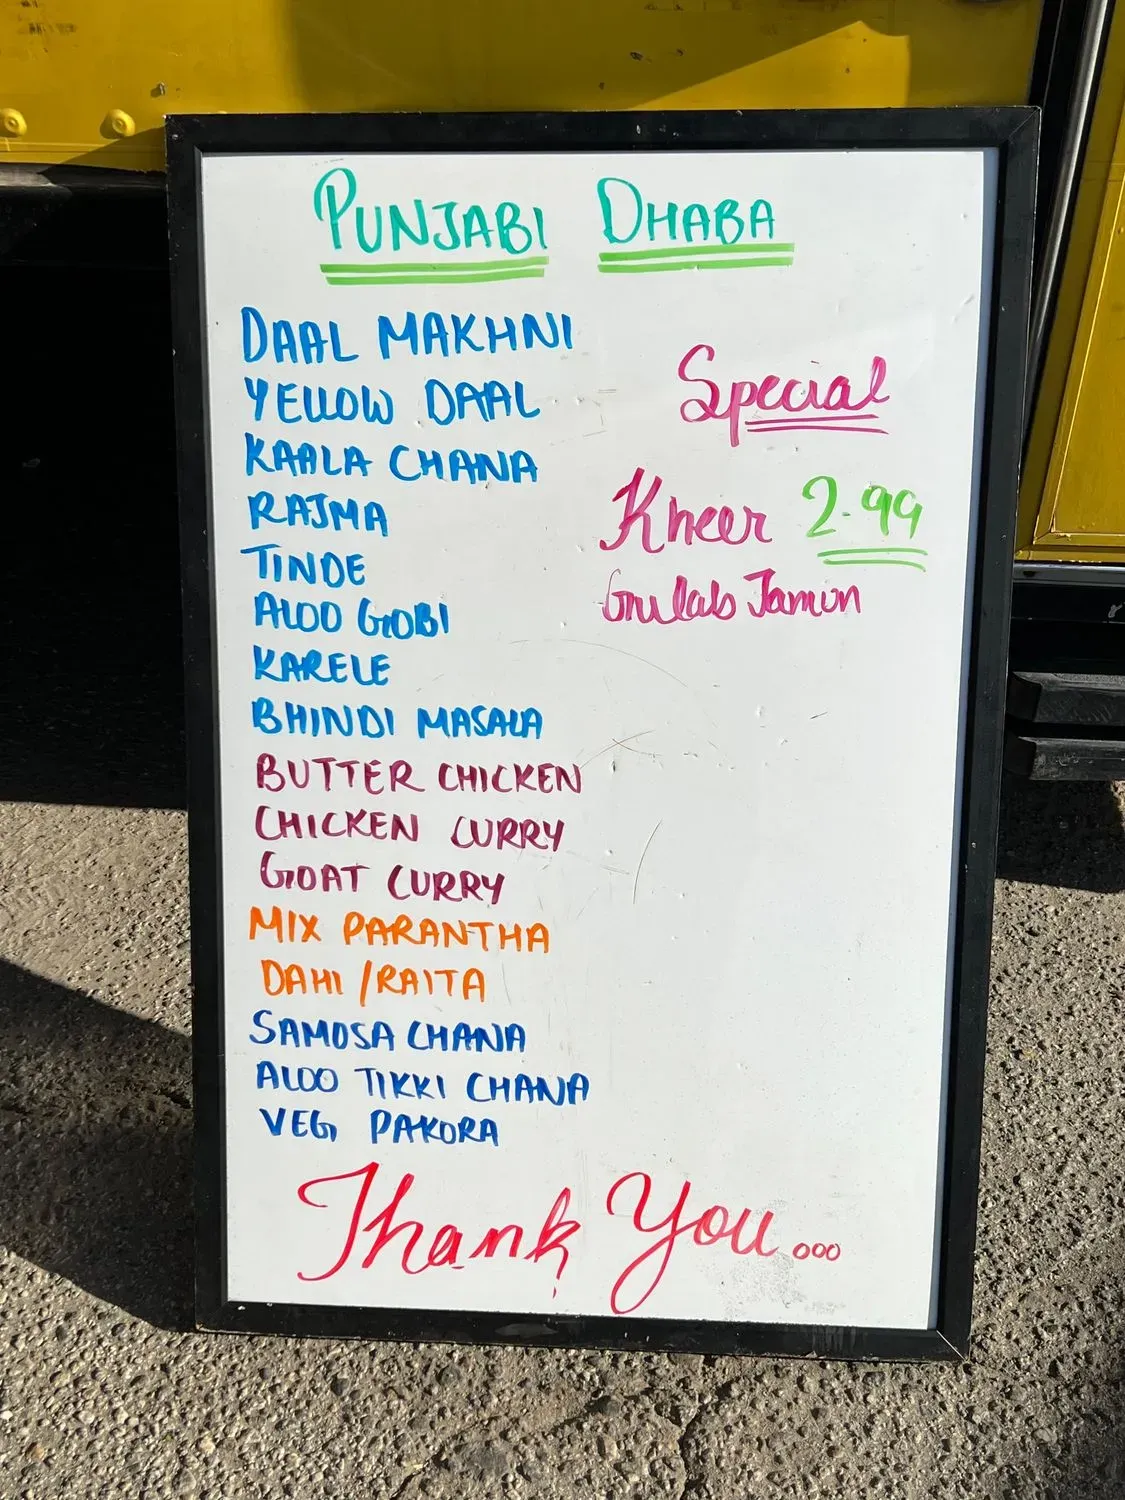 PUNJABI DHABA
DAAL MAKHNI
YELLOW DAAL
KAALA CHANA
RAJMA
TINDE
ALOO GOBI
KARELE
BHINDI MASALA
BUTTER CHICKEN
CHICKEN CURRY
GOAT CURRY
MIX PARANTHA
DAHI / RAITA
SAMOSA CHANA
ALOO TIKKI CHANA
VEG PAKORA
Special
Kheer 2.99
Gulab Jamun
Thank You...ooo